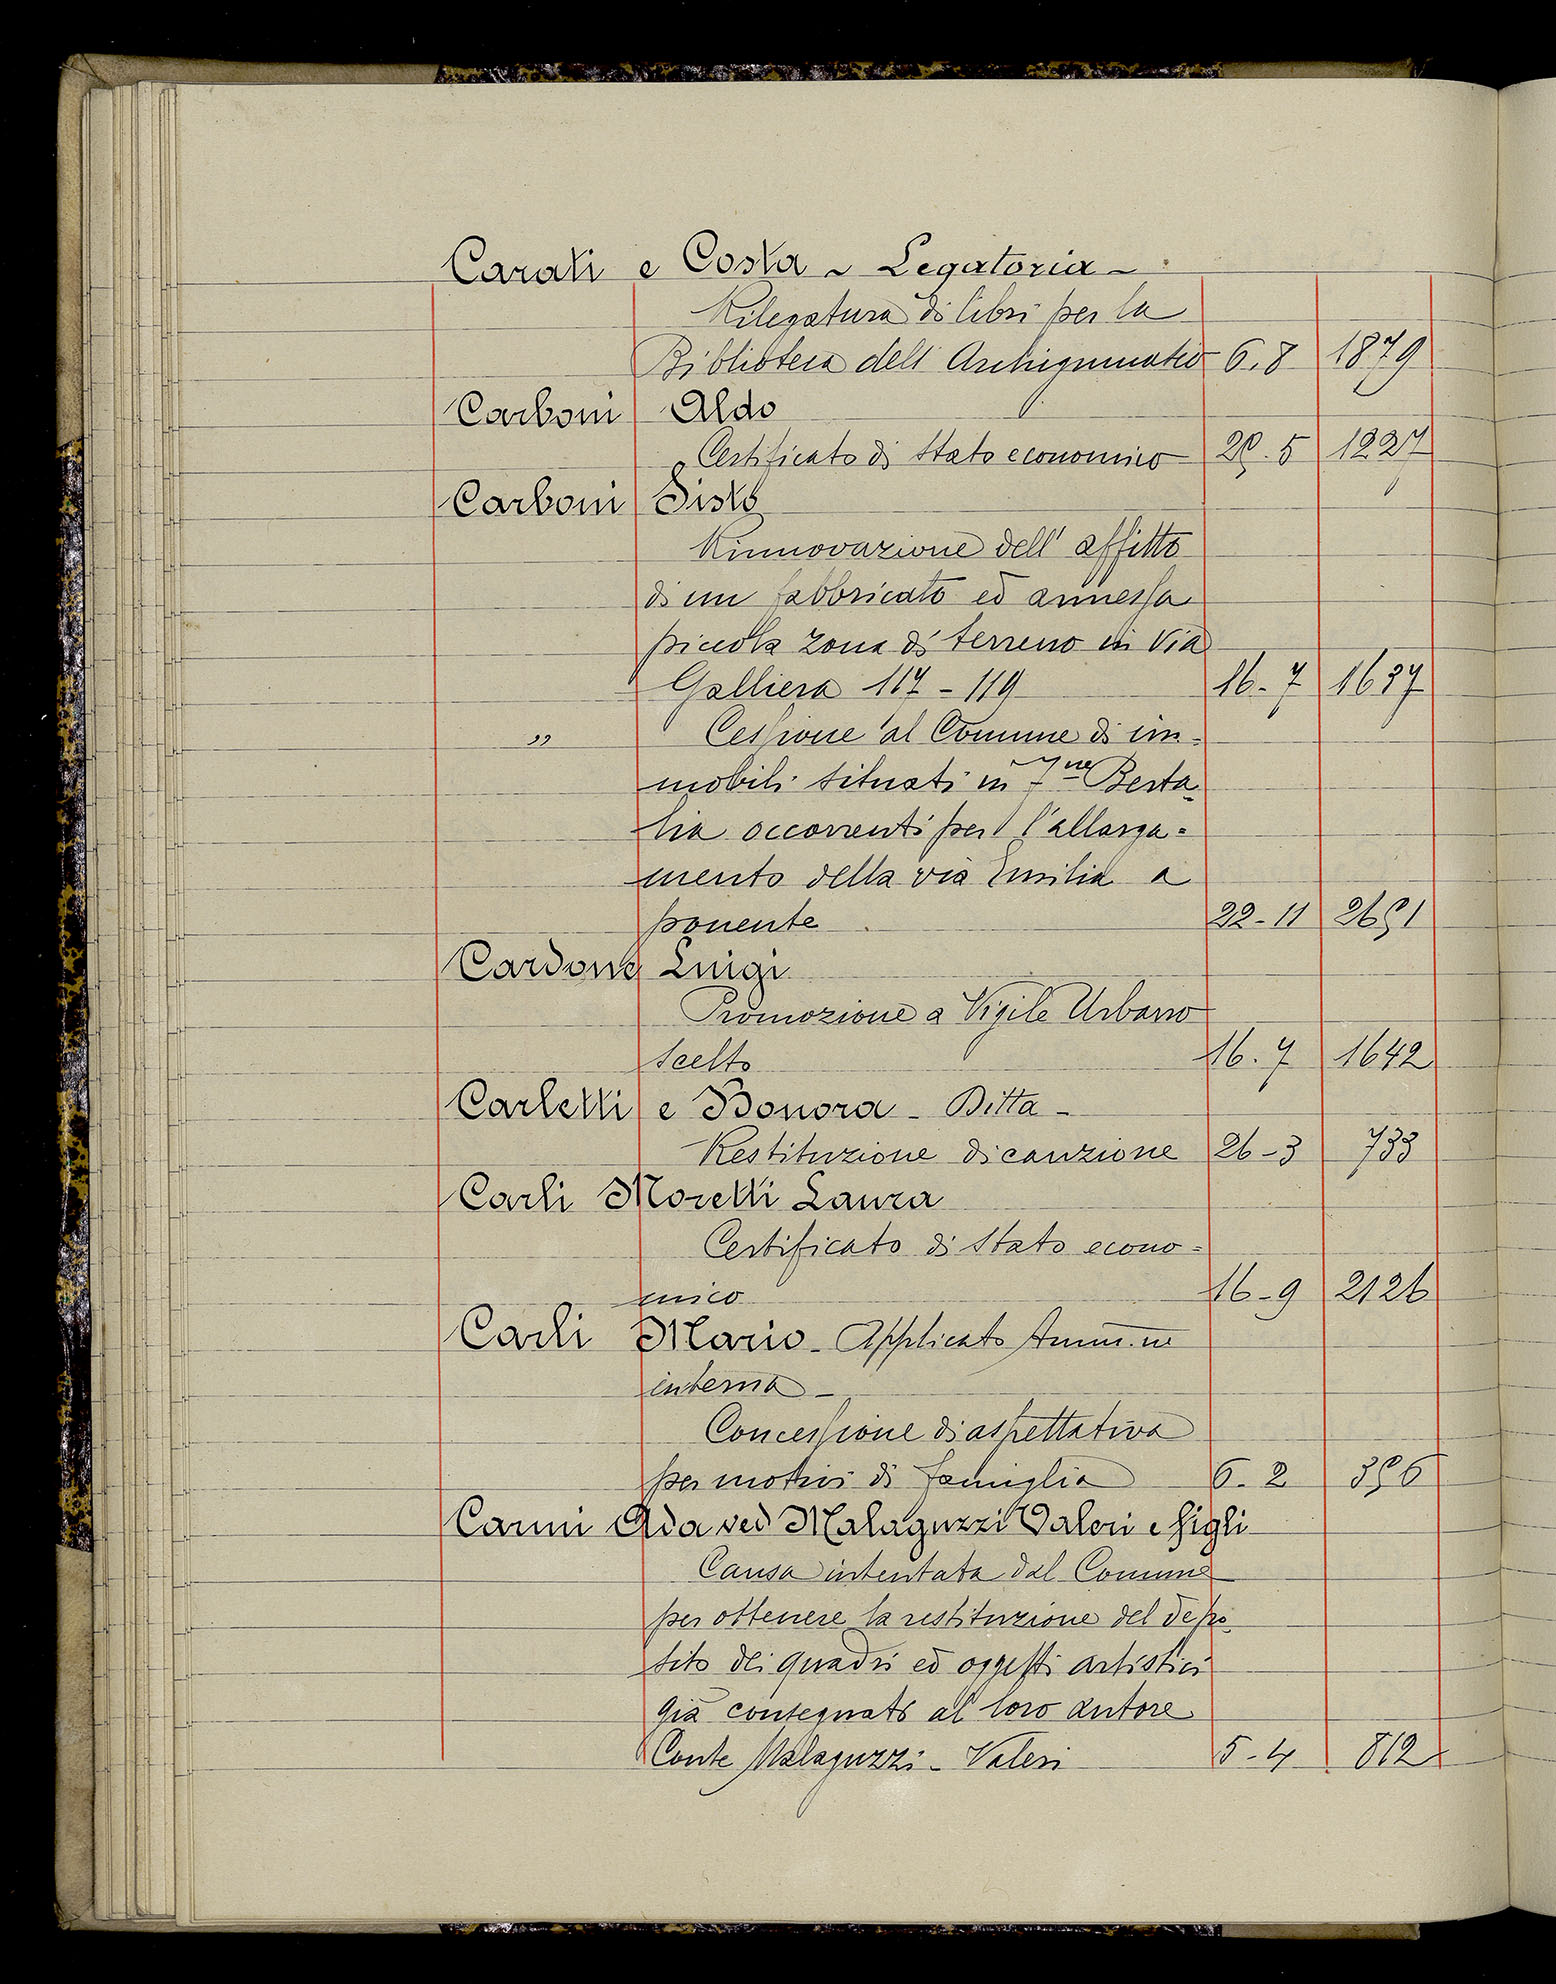 Carati e Costa - Legatoria -
Rilegatura di libri per la
Biblioteca dell'Archiginnasio 6.8 1879
Carboni Aldo
Certificato di stato economico 29.5 1227
Carboni Sisto
Rinnovazione dell'affitto
di un fabbricato ed annessa
piccola zona di terreno in Via
Galliera 117-119 16-7 1637
" Cessione al Comune di im=
mobili situati in Fne Berta=
lia occorrenti per l'allarga=
mento della via Emilia a
ponente 22-11 2651
Cardone Luigi
Promozione a Vigile Urbano
scelto 16.7 1642
Carletti e Bonora - Ditta -
Restituzione di cauzione 26-3 733
Carli Moretti Laura
Certificato di stato econo=
mico 16-9 2126
Carli Mario - Applicato Amm.ne
interna -
Concessione di aspettativa
per motivi di famiglia 6-2 356
Carmi Ada ved Malaguzzi Valeri e figli
Causa intentata dal Comune
per ottenere la restituzione del depo=
sito dei quadri ed oggetti artistici
già consegnato al loro autore
Conte Malaguzzi - Valeri 5-4 812